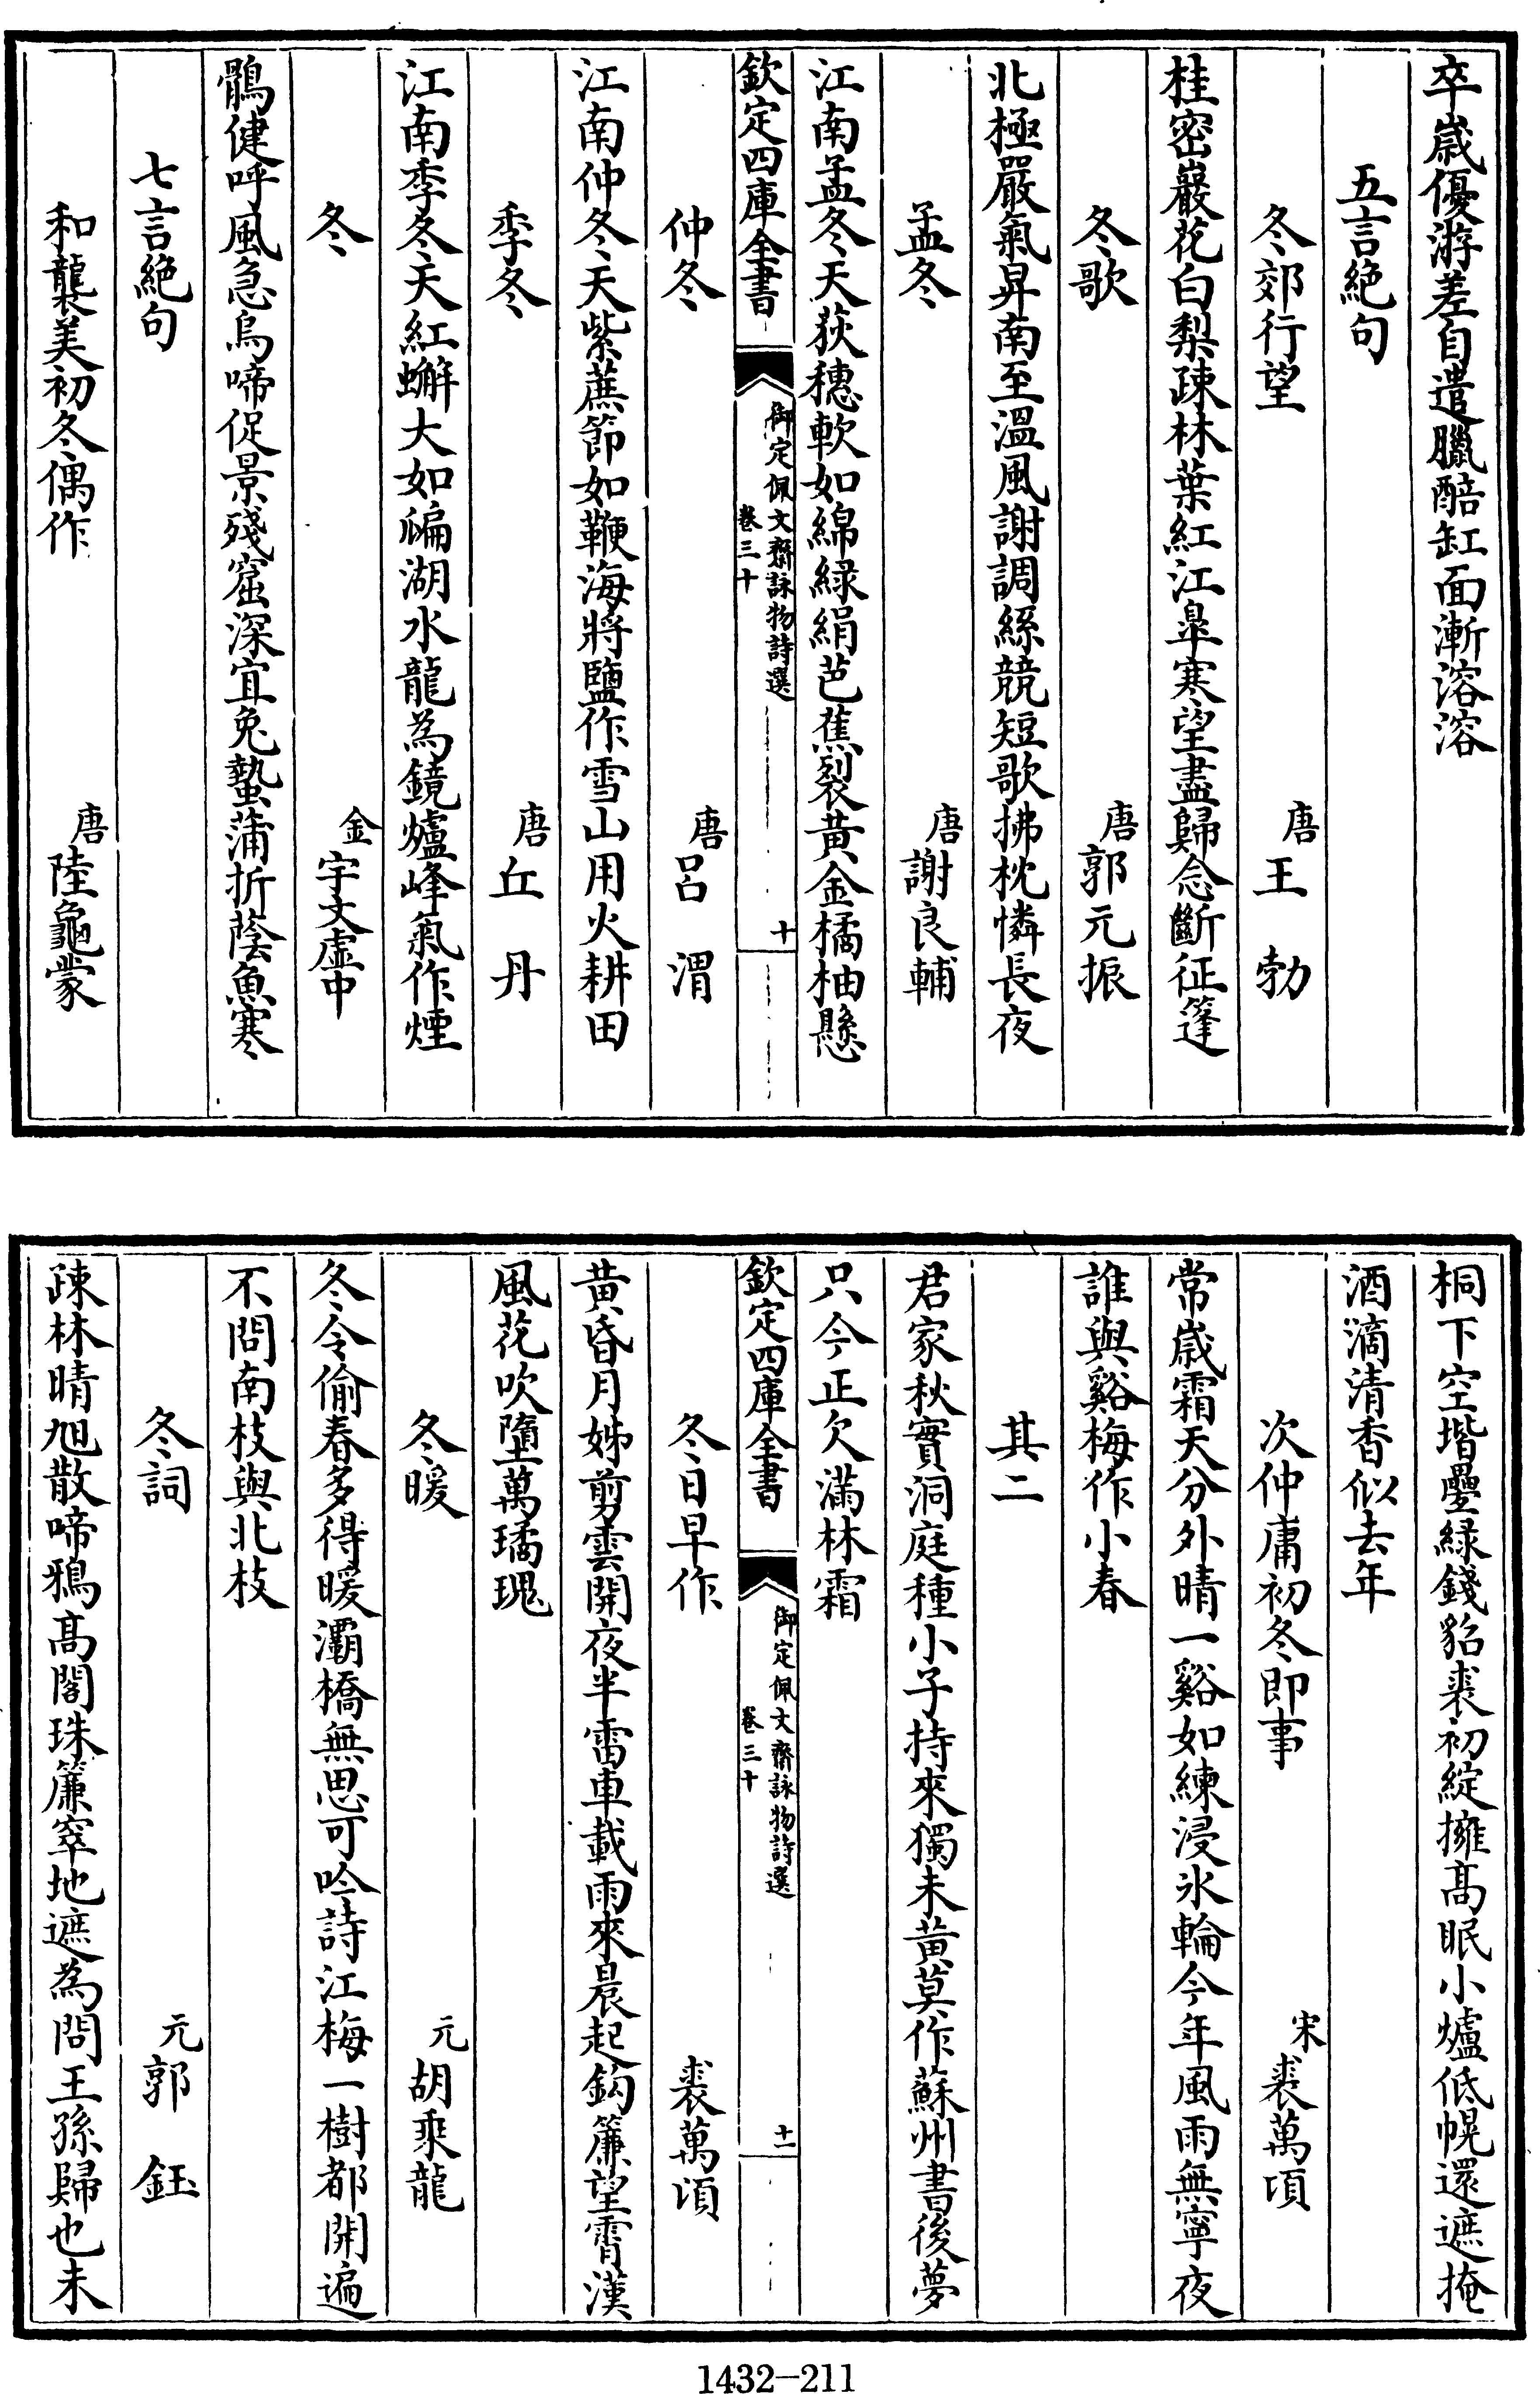 卒歲優游差自遣臘醅缸面漸溶溶
五言絶句
冬郊行望　唐王勃
桂密巖花白梨疎林葉紅江臯寒望盡歸念斷征篷
冬歌　唐郭元振
北極嚴氣昇南至溫風謝調絲競短歌拂枕憐長夜
孟冬　唐謝良輔
江南孟冬天荻穗軟如綿緑絹芭蕉裂黄金橘柚懸
欽定四庫全書　御定佩文齋詠物詩選　卷三十　十
仲冬　唐呂渭
江南仲冬天紫蔗節如鞭海將鹽作雪山用火耕田
季冬　唐丘丹
江南季冬天紅蠏大如㼐湖水龍為鏡爐峰氣作煙
冬　金宇文虚中
鶻健呼風急烏啼促景殘窟深宜兔蟄蒲折蔭魚寒
七言絶句
和襲美初冬偶作　唐陸龜蒙
桐下空堦疊緑錢貂裘初綻擁髙眠小爐低幌還遮掩
酒滴清香似去年
次仲庸初冬即事　宋裘萬頃
常歳霜天分外晴一谿如練浸氷輪今年風雨無寧夜
誰與谿梅作小春
其二
君家秋實洞庭種小子持來獨未黄莫作蘇州書後夢
只今正欠滿林霜
欽定四庫全書　御定佩文齋詠物詩選　卷三十　十一
冬日早作　裘萬頃
黄昏月姊剪雲開夜半雷車載雨來晨起鈎簾望霄漢
風花吹墮萬璚瑰
冬暖　元胡乘龍
冬令偷春多得暖灞橋無思可吟詩江梅一樹都開遍
不問南枝與北枝
冬詞　元郭鈺
疎林晴旭散啼鴉髙閣珠簾窣地遮為問王孫歸也未
1432-211